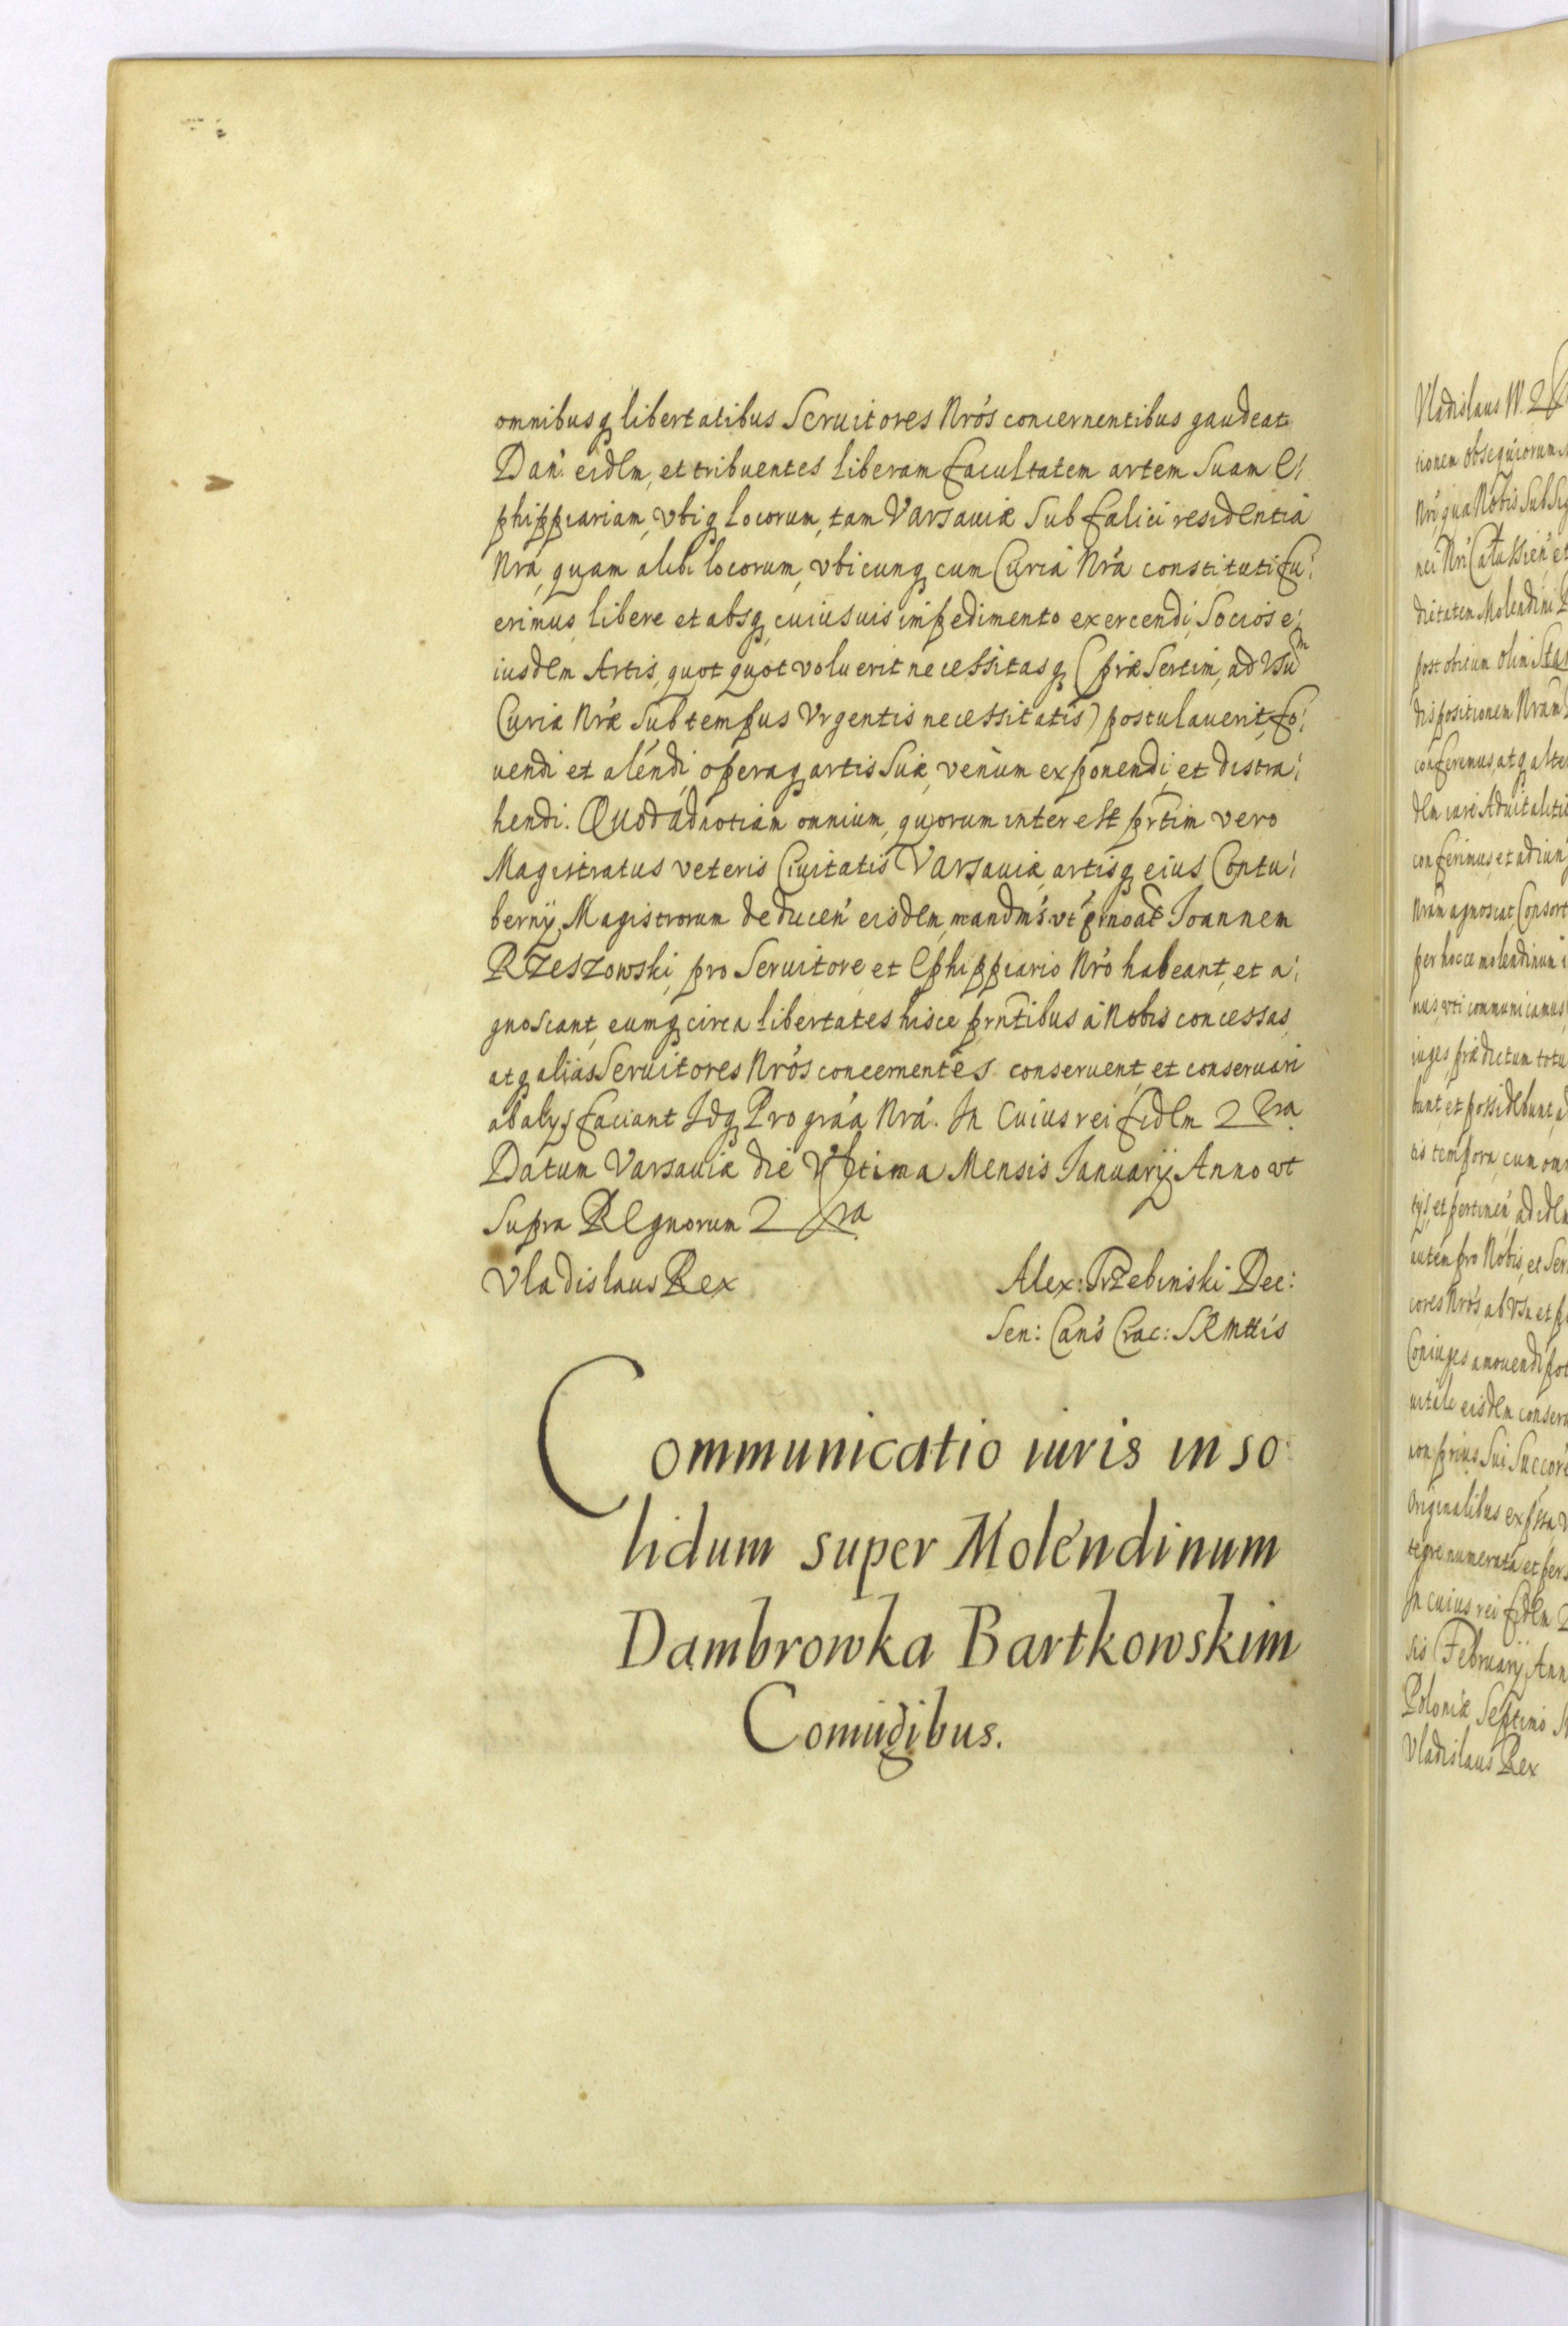 omnibusq libertatibus Seruitores Nrós concernentibus gaudeat
Dan. eidem, et tribuentes liberam facultatem artem Suam E:
phippiariam, vbiq locorum, tam Varsauiæ Sub fælici residentia
Nrá, quam alibi locorum, vbicunq cum Curia Nrá constituti fu:
erimus, libere et absq cuiusuis impedimento exercendi, Socios e:
iusdem Artis, quot quot voluerit necessitasq (præsertim, ad Vsum
Curiæ Nræ Sub tempus Vrgentis necessitatis) postulauerit, fo:
uendi et aléndi, operaq artis Suæ, venum exponendi, et distra:
hendi. Quod ad notiam omnium, quorum interest prtim vero
Magistratus veteris Ciuitatis Varsauiæ, artisq eius Contu:
bernij Magistrorum deducen eisdem, mandms vt prnoat Joannem
Rzeszowski, pro Seruitore et Ephippiario Nró habeant, et a:
gnoscant, eumq circa libertates hisce prntibus á Nobis concessas,
atq alias Seruitores Nrós concernentes conseruent, et conseruari
ab alys faciant Idq Pro gráa Nrá. In Cuius rei fidem 2 Ra.
Datum Varsauiæ die Vltima Mensis Januarij Anno vt
Supra Regnorum 2 Ra
Vladislaus Rex Alex: Trzebinski Dec:
Sen: Cans Crac: SRMttis
Communicatio iuris in so:
lidum super Moléndinum
Dambrowka Bartkowskim
Coniugibus.
Vladislaus IV. 2
tionem obsequiorum
Nri qua Nobis Sub
nei Nri
dietatem Molendini
post obitum olim
dispositionem Nram
conferemus, atq
dem iari Aduitalitii
conferimus, et
Nram agnoscat Consort
per hocce molendinum
nus, vti communicamus
iuges prædictum
bunt, et possidebunt,
tis tempora, cum
et pertinen ad
auten pro Nobis, et Ser
cores Nrós, ab Vsu et
Coniuges amouendi
uitale eisdem
non prius Sui
Originalibus
tegre numerata et
In cuius rei fidem
sis February Ann
Poloniæ Septimo
Vladislaus Rex